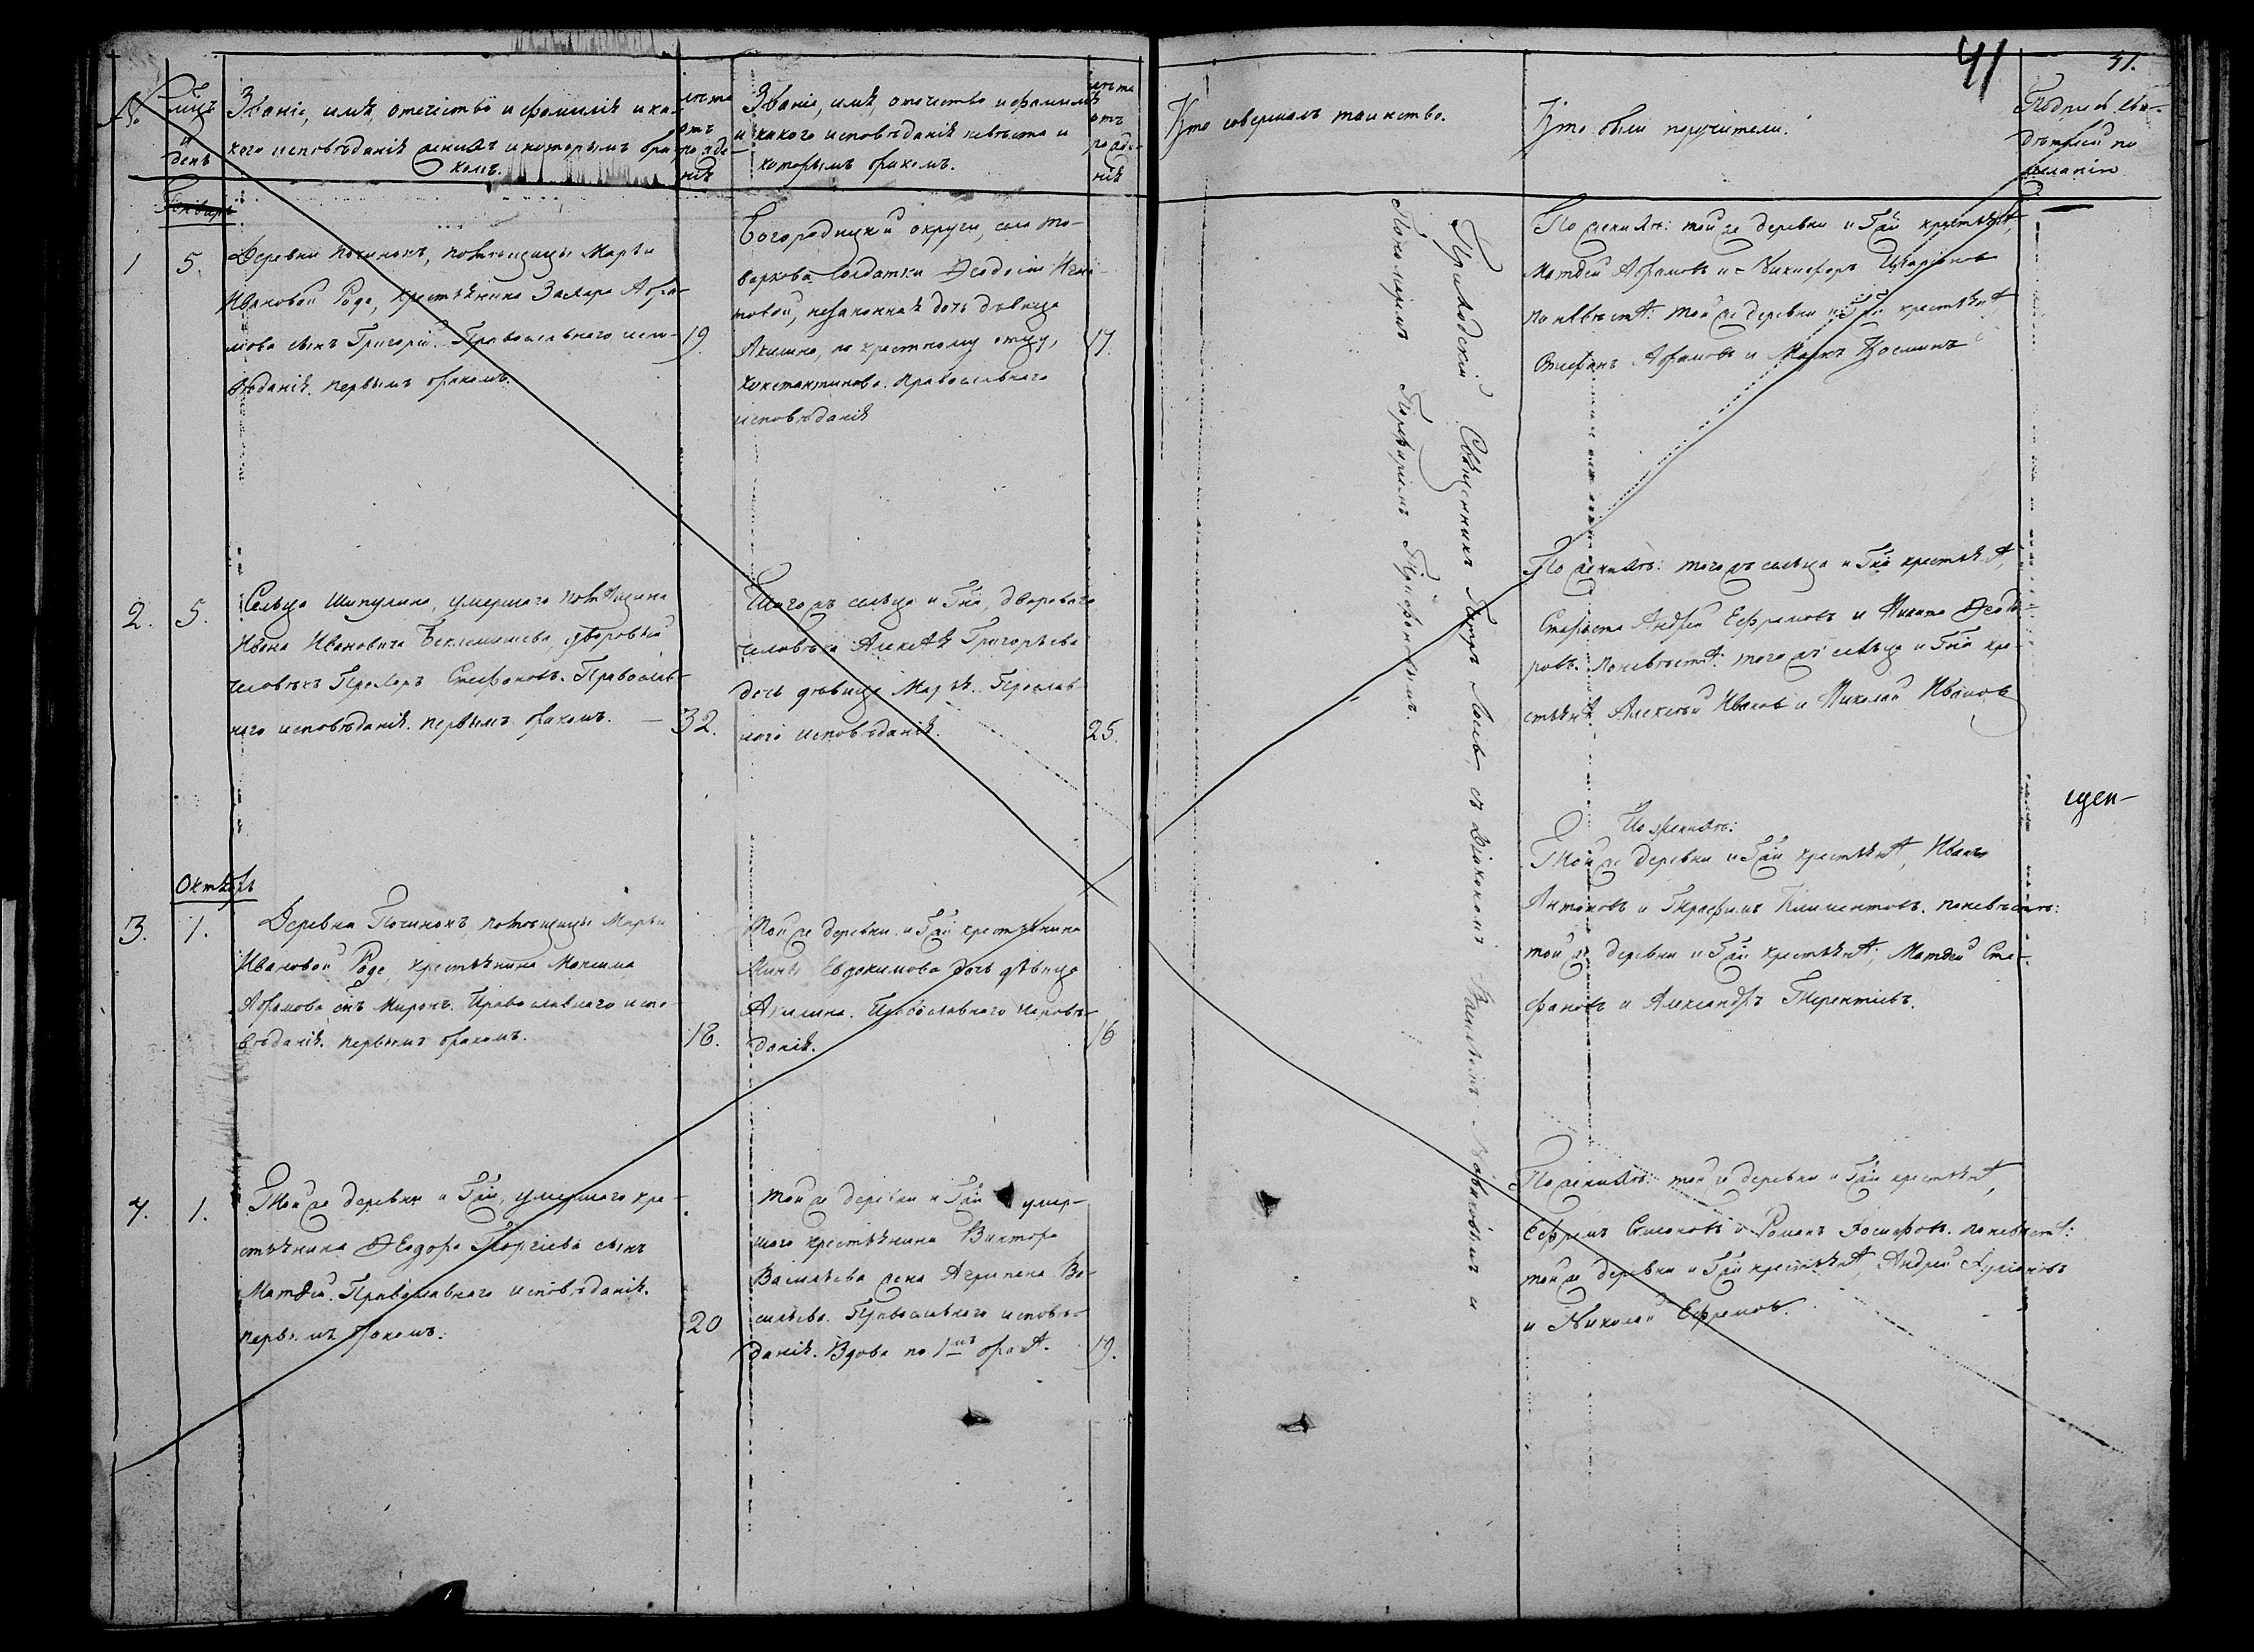 41
41.
№
мцъ
и
день
Званіе, имя, отечество и фамилія и ка-
кого исповѣданія женихъ и которымъ бра-
комъ.
лѣта
отъ
рожде-
нія
Званіе, имя, отечество и фамилія
и какого исповѣданія невѣста и
которымъ бракомъ.
лѣта
отъ
рожде-
нія
Кто совершалъ таинство.
Кто были поручители.
Подписъ сви-
дѣтелей по
желанію
Генварь
1
5.
Деревни Починокъ, помѣщицы Марьи
Ивановой Роде, крестьянина Захара Абра-
мова сынъ Григорій. Православнаго испо-
вѣданія. первымъ бракомъ.
19.
Богородицкой округи, села То-
варкова солдатки Ѳеодосіи
товой, незаконная дочь дѣвица
Акилина, по крестному отцу,
Константинова. Православнаго
исповѣданія
17.
По женихѣ: той же деревни и Гжи крестьяне,
Матѳей Абрамовъ и Никифоръ
по невѣстѣ: той же деревни и Гжи крестьяне
Стефанъ Абрамовъ и Маркъ Косминъ
2.
5.
Сельца Шипулина, умершаго помѣщика
Ивана Ивановича Беклемишева, дворовый
человѣкъ Прохоръ Стефановъ. Православ-
наго исповѣданія. первымъ бракомъ. —
32.
Тогожъ сельца и Гна, двороваго
человѣка Алексѣя Григорьева
дочь дѣвица Марья. Православ-
наго исповѣданія.
25.
По женихѣ: тогожъ сельца и Гна крестьяне,
Староста Андрей Ефремовъ и Никита Ѳеодо-
ровъ. по невѣстѣ: тогожъ сельца и Гна кре-
стьяне Алексѣй Ивановъ и Николай Ивановъ
Приходскій Священникъ Петръ Лосевъ, съ діакономъ Василіемъ Новиковымъ и
Пономаремъ Порфиріемъ Трифоновымъ.
цен-
Октябрь
3.
1.
Деревни Починокъ, помѣщицы Марьи
Ивановой Роде, крестьянина Максима
Абрамова снъ Миронъ. Православнаго испо-
вѣданія. первымъ бракомъ.
18.
Той же деревни и Гжи крестьянина
Мины Евдокимова дочь дѣвица
Акилина. Православнаго исповѣ-
данія.
16
По женихѣ:
Той же деревни и Гжи крестьяне, Иванъ
Антоновъ и Герасимъ Климентовъ. по невѣстѣ:
той же деревни и Гжи крестьяне; Матѳей Сте-
фановъ и Александръ Терентіевъ.
4.
1.
Той же деревни и Гжи, умершаго кре-
стьянина Ѳеодора Георгіева сынъ
Матѳей. Православнаго исповѣданія.
первымъ бракомъ.
20
той же деревни и Гжи умер-
шаго крестьянина Виктора
Васильева жена Агрипена Ва-
сильева. Православнаго исповѣ-
данія. Вдова по 1мъ бракѣ.
19.
По женихѣ: той же деревни и Гжи крестьяне,
Ефремъ Симоновъ и Романъ Іосифовъ. по невѣстѣ:
той же деревни и Гжи крестьяне, Андрей
и Николай Ефремовъ.